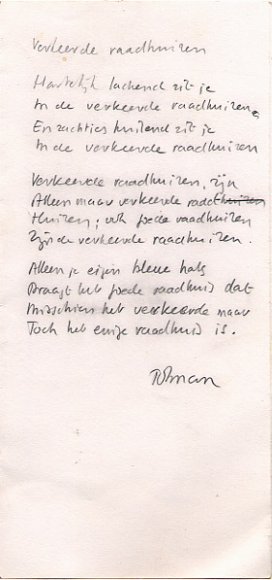 Verkeerde raadhuizen
Hartelijk lachend zit je
In de verkeerde raadhuizen.
En zachtjes huilend zit je
In de verkeerde raadhuizen
Verkeerde raadhuizen, zijn
Alleen maar verkeerde raadhuizen
Huizen; ook goede raadhuizen
Zijn de verkeerde raadhuizen.
Alleen je eigen bleue hals
Draagt het goede raadhuis dat
Misschien het verkeerde maar
Toch het enige raadhuis is.